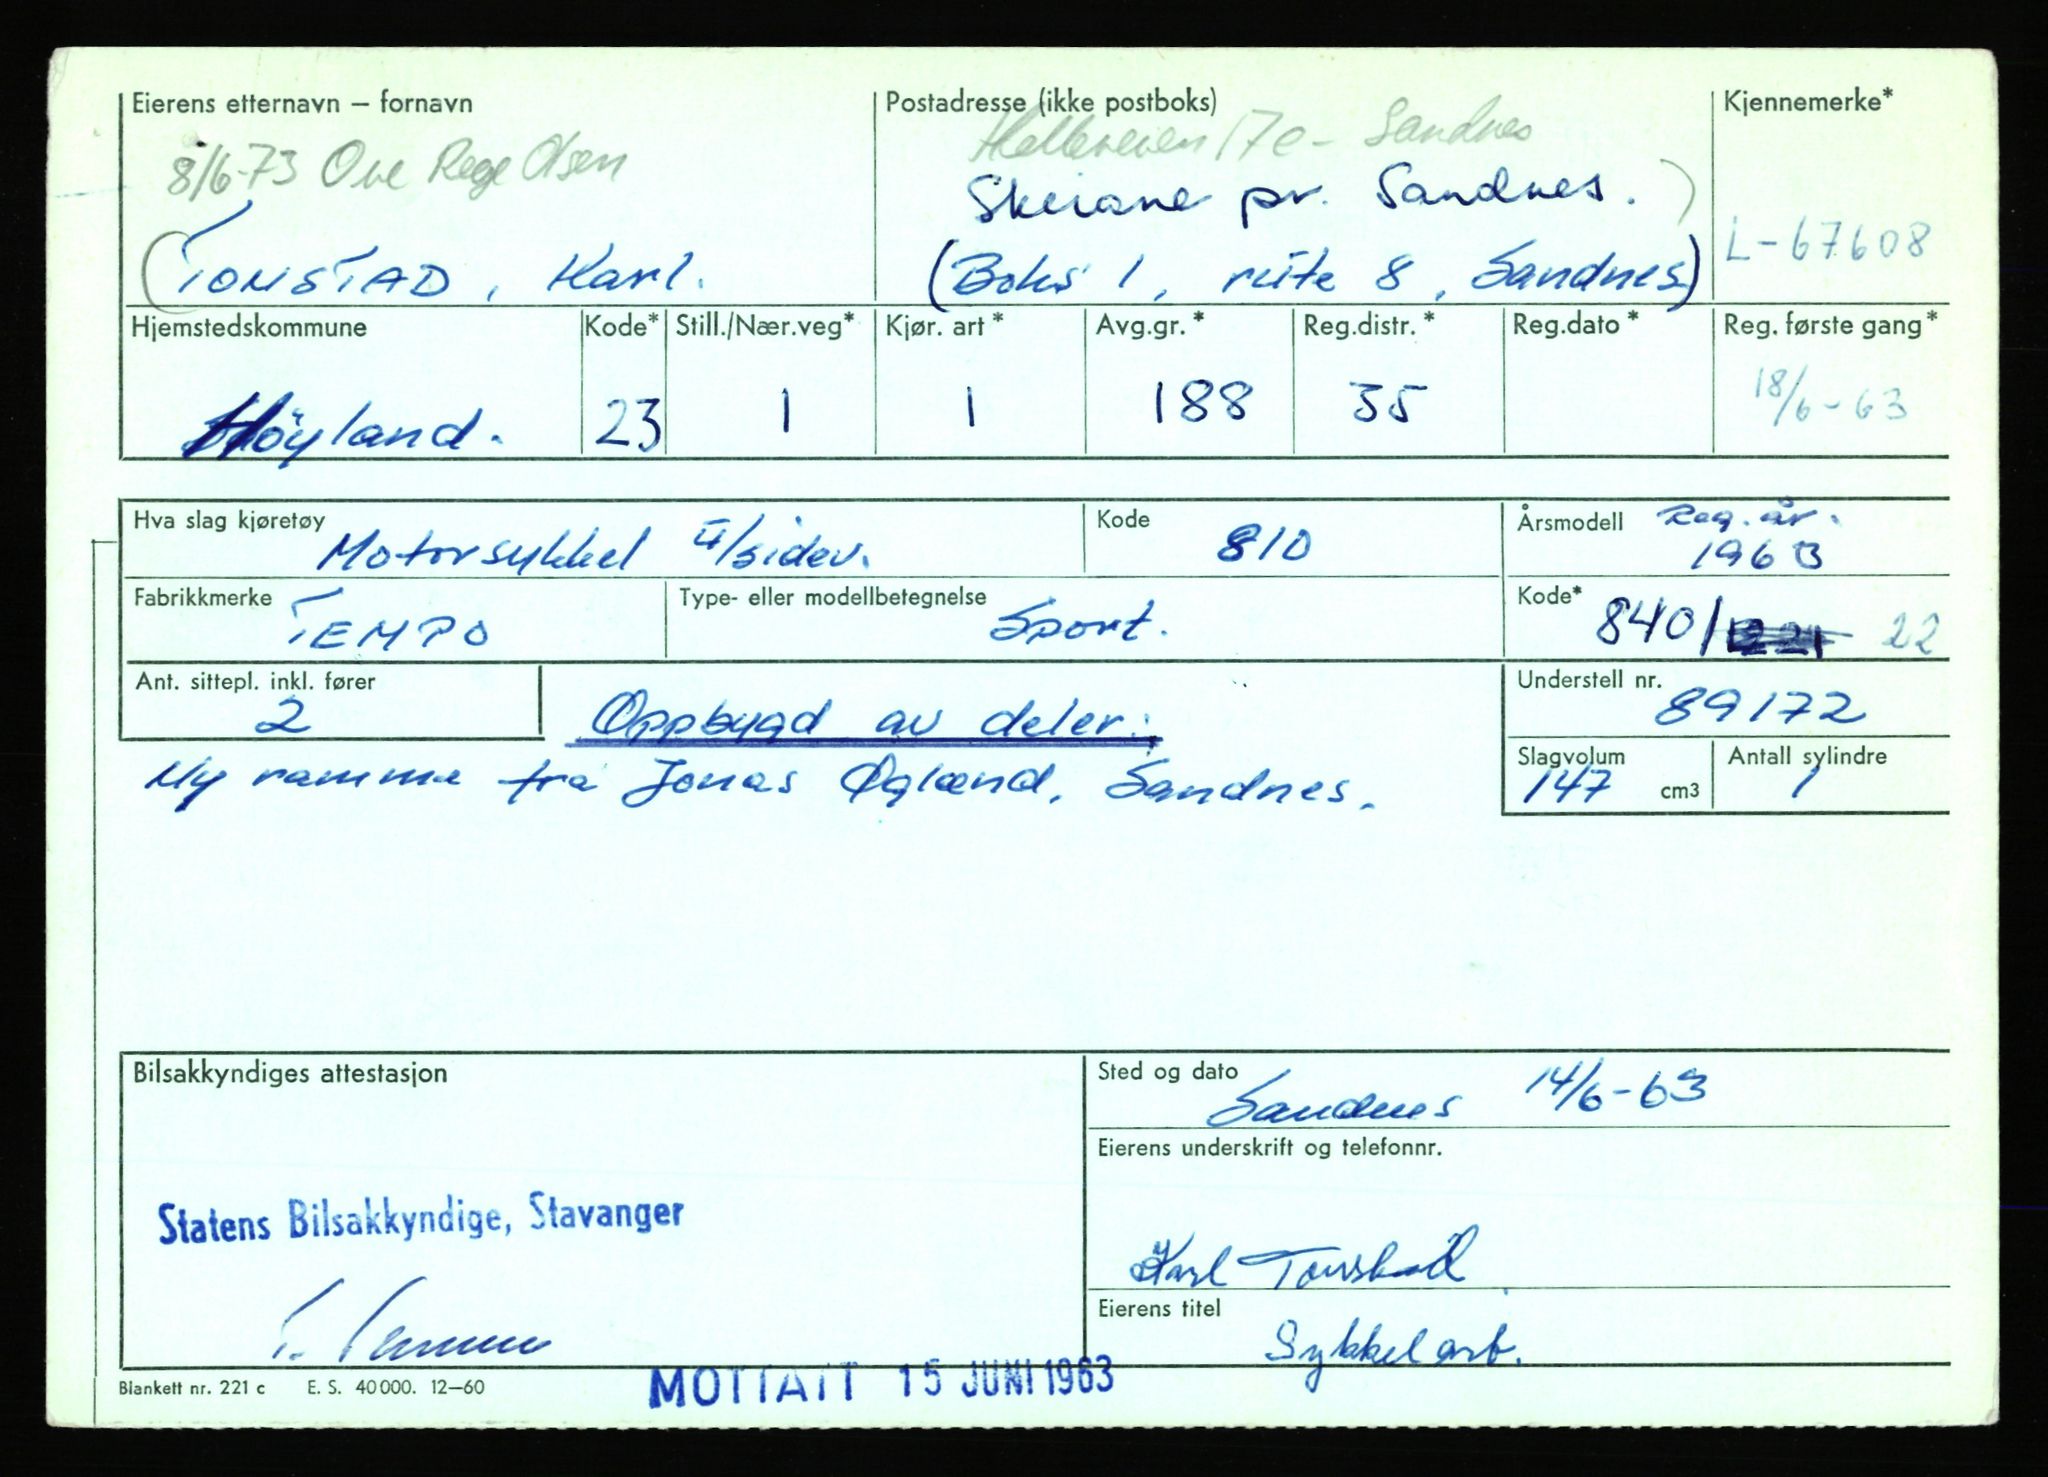 Eierens etternavn – fornavn
Postadresse (ikke postboks)
Kjennemerke*
8/6-73 Ove Rege Olsen
17c - Sandnes
Skeiane pr. Sandnes.
(TONSTAD, Karl.
(Boks 1, rute 8, Sandnes)
L-67608
Hjemstedskommune
Kode*
Still./Nær.veg*
Kjør. art*
Avg.gr.*
Reg.distr.*
Reg.dato*
Reg. første gang*
Höyland.
23
1
1
188
35
18/6-63
Hva slag kjøretøy
Motorsykkel u/sidev.
Kode
810
Årsmodell
Reg. år.
1963
Fabrikkmerke
TEMPO
Type- eller modellbetegnelse
Sport.
Kode*
840/ 22
Ant. sittepl. inkl. fører
2
Oppbygd av deler.
Understell nr.
89172
Ny ramme fra Jonas Øglænd, Sandnes.
Slagvolum
147 cm3
Antall sylindre
1
Bilsakkyndiges attestasjon
Sted og dato
Sandnes 14/6-63
Eierens underskrift og telefonnr.
Statens Bilsakkyndige, Stavanger
Karl Tonstad
Eierens titel
Sykkelarb.
Blankett nr. 221 c E. S. 40 000. 12–60
MOTTATT 15 JUNI 1963